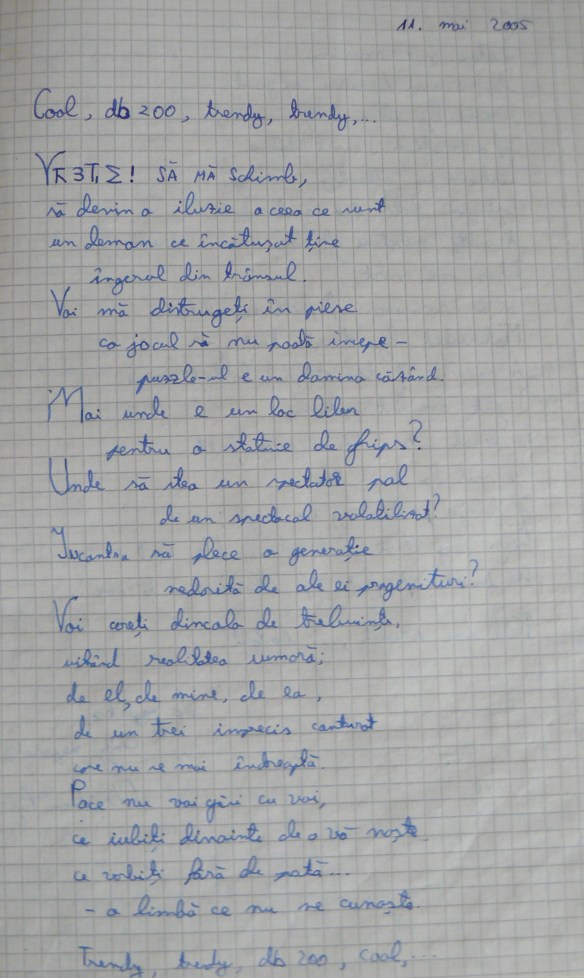 11. mai 2005
Cool, db 200, trendy, trendy,...
SĂ MĂ schimb,
să devin o iluzie a ceea ce sunt
un demon ce încătușat ține
îngerul din trânsul.
Voi mă distrugeți în piese
ca jocul să nu poată începe -
puzzle-ul e un domino căzând.
Mai unde e un loc liber
pentru o statuie de ghips?
Unde să stea un spectator pal
de un spectacol volatilizat?
să plece o generație
nedorită de ale ei progenituri?
Voi cereți dincolo de trebuințe,
uitând realitatea sumară;
de el, de mine, de ea,
de un trei imprecis conturat
ce nu se mai îndreaptă.
Pace nu voi găsi cu voi,
ce iubiți dinainte de a vă naște
ce vorbiți fără de pată...
- o limbă ce nu se cunoaște.
Trendy, trendy, db 200, cool,...